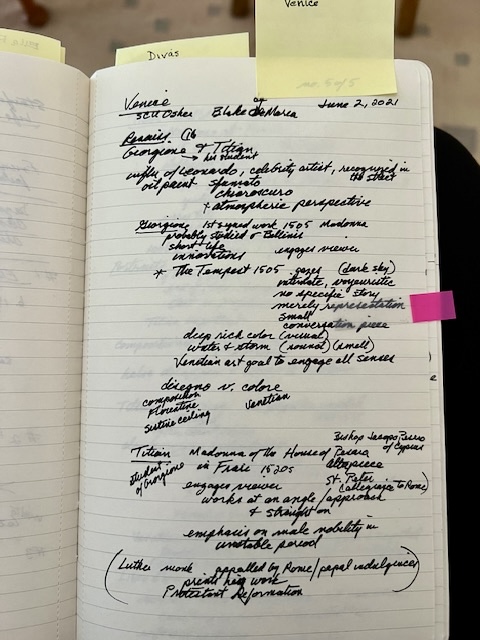 Divás
Venice
no. 5 of 5
Venice
June 2, 2021
SCU Osher Blake DeMaria
C16
Giorgione & Titian
→ his student
infl. of Leonardo, celebrity artist, recognized in
the street
oil paint sfumato
chiaroscuro
+ atmospheric perspective
Giorgione 1st signed work 1505 Madonna
probably studied c Bellinis
short life
engages viewer
innovations
* The Tempest 1505 gazes (dark sky)
intimate, voyeuristic
no specific story
merely representation
small
conversation piece
deep rich color (visual)
water & storm (sound) (smell)
Venetian art goal to engage all senses
disegno v. colore
composition
Florentine
Venetian
Sistine ceiling
Bishop Jacopo Pesaro
of Cyprus
Titian Madonna of the House of Pesaro
student
of Giorgione
in Frari 1520s
altarpiece
St. Peter
(allegiance to Rome)
engage viewer
works at an angle/approach
& straight on
emphasis on male nobility in
unstable period
(Luther monk appalled by Rome/papal indulgences)
prints his work
Protestant Reformation